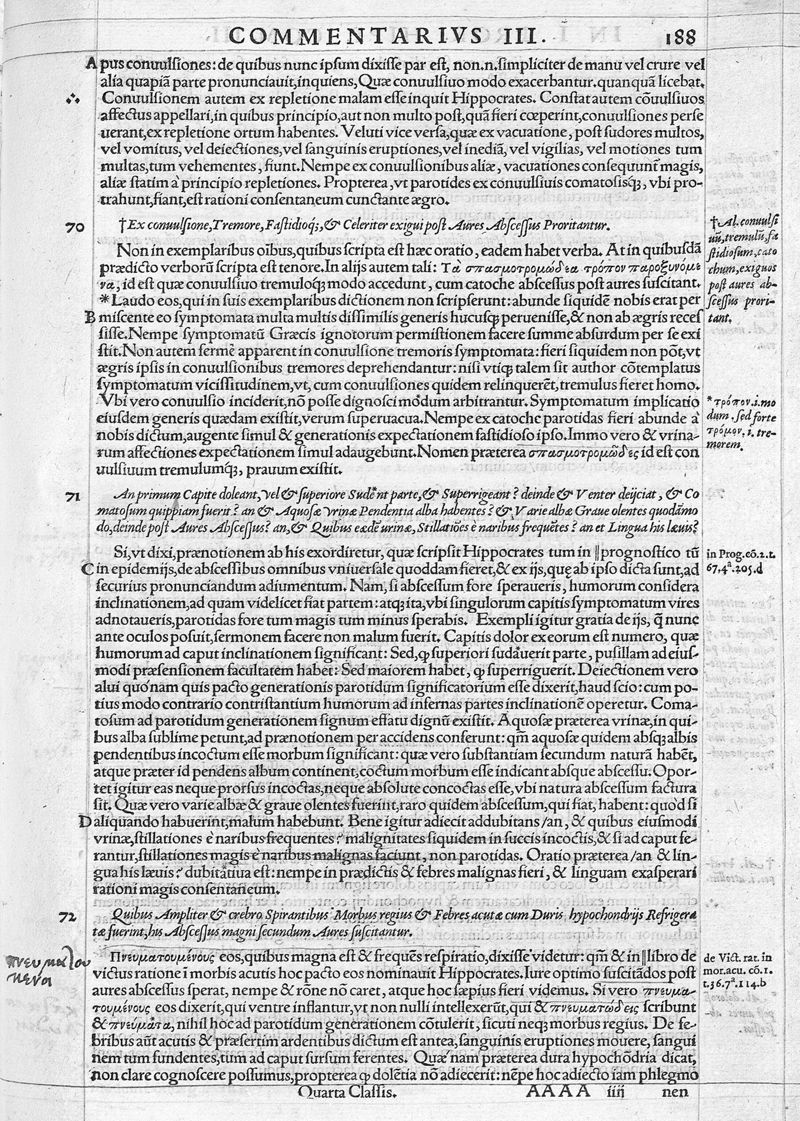 COMMENTARIVS III. 188
A pus conuulsiones: de quibus nunc ipsum dixisse par est, non.n. simpliciter de manu vel crure vel
alia quapiã parte pronunciauit, inquiens, Quæ conuulsiuo modo exacerbantur. quanquã licebat.
Conuulsionem autem ex repletione malam esse inquit Hippocrates. Constat autem cõuulsiuos
affectus appellari, in quibus principio, aut non multo post, quã fieri cœperint, conuulsiones perse
uerant, ex repletione ortum habentes. Veluti vice versa, quæ ex vacuatione, post sudores multos,
vel vomitus, vel deiectiones, vel sanguinis eruptiones, vel inediã, vel vigilias, vel motiones tum
multas, tum vehementes, fiunt. Nempe ex conuulsionibus aliæ, vacuationes consequunt̃ magis,
aliæ statim à principio repletiones. Propterea, vt parotides ex conuulsiuis comatosisq;, vbi pro-
trahunt, fiant, est rationi consentaneum cunctante ægro.
70 †Ex conuulsione, Tremore, Fastidioq;, & Celeriter exigui post Aures Abscessus Proritantur.
†Al. conuulsi
uũ, tremulũ, fa
stidiosum, cato
chum, exiguos
post aures ab-
scessus prori-
tant.
Non in exemplaribus oĩbus, quibus scripta est hæc oratio, eadem habet verba. At in quibusdã
prædicto verborũ scripta est tenore. In alijs autem tali: Τὰ σπασμοτρομώδεα τρόπον παροξυνόμε
να, id est quæ conuulsiuo tremuloq; modo accedunt, cum catoche abscessus post aures suscitant.
*Laudo eos, qui in suis exemplaribus dictionem non scripserunt: abunde siquidẽ nobis erat per
B miscente eo symptomata multa multis dissimilis generis hucusq; peruenisse, & non ab ægris reces
sisse. Nempe symptomatũ Græcis ignotorum permistionem facere summe absurdum per se exi
stit. Non autem fermè apparent in conuulsione tremoris symptomata: fieri siquidem non põt, vt
ægris ipsis in conuulsionibus tremores deprehendantur: nisi vtiq; talem sit author cõtemplatus
symptomatum vicissitudinem, vt, cum conuulsiones quidem relinquerẽt, tremulus fieret homo.
Vbi vero conuulsio inciderit, nõ posse dignosci modum arbitrantur. Symptomatum implicatio
eiusdem generis quædam existit, verum superuacua. Nempe ex catoche parotidas fieri abunde à
nobis dictum, augente simul & generationis expectationem fastidioso ipso. Immo vero & vrina-
rum affectiones expectationem simul adaugebunt. Nomen præterea σπασμοτρομῶδες id est con
uulsiuum tremulumq;, prauum existit.
* τρόπον. i. mo
dum. sed forte
τρόμον. i. tre-
morem.
71 An primum Capite doleant, vel & superiore Sudẽnt parte, & Superrigeant? deinde & Venter deijciat, & Co
matosum quippiam fuerit? an & Aquosæ vrinæ Pendentia alba habentes? &, Varie albæ Graue olentes quodãmo
do, deinde post Aures Abscessus? an, & Quibus eædẽ urinæ, Stillatiões è naribus frequẽtes? an et Lingua his læuis?
Si, vt dixi, prænotionem ab his exordiretur, quæ scripsit Hippocrates tum in ‖prognostico tũ
C in epidemijs, de abscessibus omnibus vniuersale quoddam fieret, & ex ijs, quę ab ipso dicta sunt, ad
securius pronunciandum adiumentum. Nam, si abscessum fore speraueris, humorum considera
inclinationem, ad quam videlicet fiat partem: atq; ita, vbi singulorum capitis symptomatum vires
adnotaueris, parotidas fore tum magis tum minus sperabis. Exempli igitur gratia de ijs, q̃ nunc
ante oculos posuit, sermonem facere non malum fuerit. Capitis dolor ex eorum est numero, quæ
humorum ad caput inclinationem significant: Sed, ꝙ superiori sudauerit parte, pusillam ad eius-
modi præsensionem facultatem habet: Sed maiorem habet, ꝙ superriguerit. Deiectionem vero
alui quónam quis pacto generationis parotidum significatorium esse dixerit, haud scio: cum po-
tius modo contrario contristantium humorum ad infernas partes inclinationẽ operetur. Coma-
tosum ad parotidum generationem signum effatu dignũ existit. Aquosæ præterea vrinæ, in qui-
bus alba sublime petunt, ad prænotionem per accidens conferunt: qm̃ aquosæ quidem absq; albis
pendentibus incoctum esse morbum significant: quæ vero substantiam secundum naturã habẽt,
atque præter id pendens album continent, coctum morbum esse indicant absque abscessu. Opor-
tet igitur eas neque prorsus incoctas, neque absolute concoctas esse, vbi natura abscessum factura
sit. Quæ vero varie albæ & graue olentes fuerint, raro quidem abscessum, qui fiat, habent: quòd si
D aliquando habuerint, malum habebunt. Bene igitur adiecit addubitans/an, & quibus eiusmodi
vrinæ, stillationes è naribus frequentes? malignitates siquidem in succis incoctis, & si ad caput fe-
rantur, stillationes magis è naribus malignas faciunt, non parotidas. Oratio præterea/an & lin-
gua his læuis? dubitatiua est: nempe in prædictis & febres malignas fieri, & linguam exasperari
rationi magis consentaneum.
in Prog. cõ. 2. t.
67. 4ª. 205. d
72 Quibus Ampliter & crebro Spirantibus Morbus regius & Febres acutæ cum Duris hypochondrijs Refrigera
tæ fuerint, his Abscessus magni secundum Aures suscitantur.
Πνευματουμένους eos, quibus magna est & frequẽs respiratio, dixisse videtur: qm̃ & in ‖libro de
victus ratione ĩ morbis acutis hoc pacto eos nominauit Hippocrates. Iure optimo suscitãdos post
aures abscessus sperat, nempe & rõne nõ caret, atque hoc sæpius fieri videmus. Si vero πνευμα-
τουμένους eos dixerit, qui ventre inflantur, vt non nulli intellexerũt, qui & πνευματώδεις scribunt
& πνεύματα, nihil hoc ad parotidum generationem cõtulerit, sicuti neq; morbus regius. De fe-
bribus aũt acutis & præsertim ardentibus dictum est antea, sanguinis eruptiones mouere, sangui
nem tum fundentes, tum ad caput sursum ferentes. Quæ nam præterea dura hypochõdria dicat,
non clare cognoscere possumus, propterea ꝙ dolẽtia nõ adiecerit: nẽpe hoc adiecto iam phlegmo
de Vict. rat. in
mor. acu. cõ. 1.
t. 36. 7ª. 114. b
Quarta Classis. AAAA iiij nen